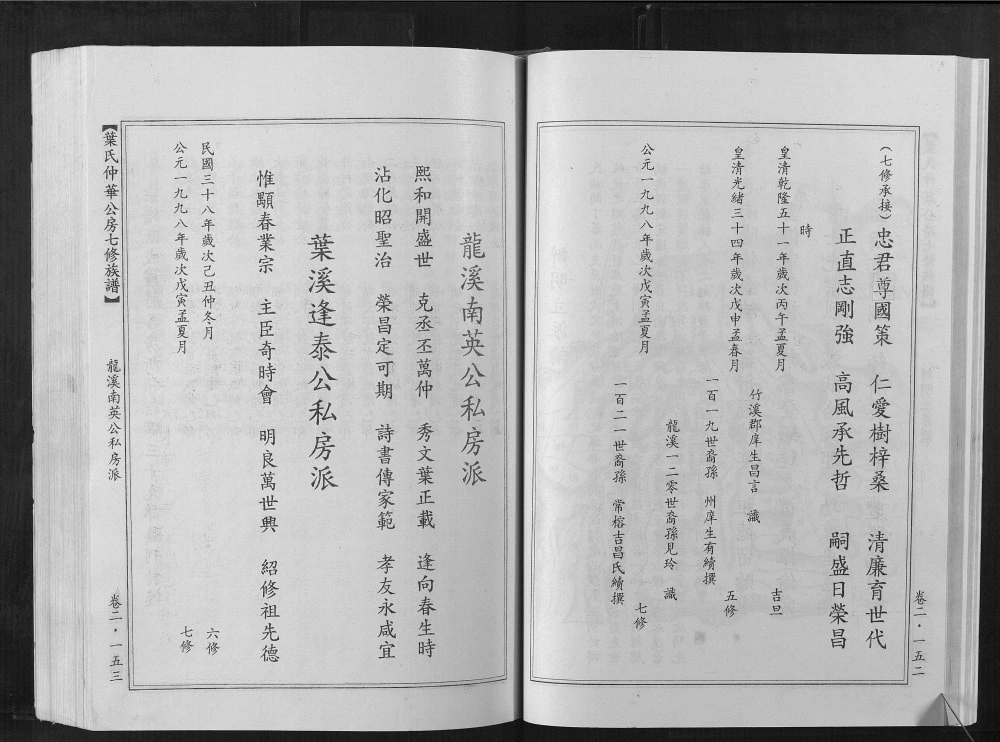 卷二·一五二
（七修承接）忠君尊國策　仁愛樹梓桑　清廉育世代
正直志剛強　高風承先哲　嗣盛日榮昌
時
皇清乾隆五十一年歲次丙午孟夏月　吉旦
竹溪郡庠生昌言　識
皇清光緒三十四年歲次戊申孟春月　五修
一百一九世裔孫　州庠生有續撰
龍溪一二零世裔孫見玲　識
公元一九九八年歲次戊寅孟夏月　七修
一百二一世裔孫　常榕吉昌氏續撰
龍溪南英公私房派
熙和開盛世　克丞丕萬仲　秀文葉正載　逢向春生時
沾化昭聖治　榮昌定可期　詩書傳家範　孝友永咸宜
葉溪逢泰公私房派
惟顯春業宗　主臣奇時會　明良萬世興　紹修祖先德
民國三十八年歲次己丑仲冬月　六修
公元一九九八年歲次戊寅孟夏月　七修
【葉氏仲華公房七修族譜】　龍溪南英公私房派　卷二·一五三